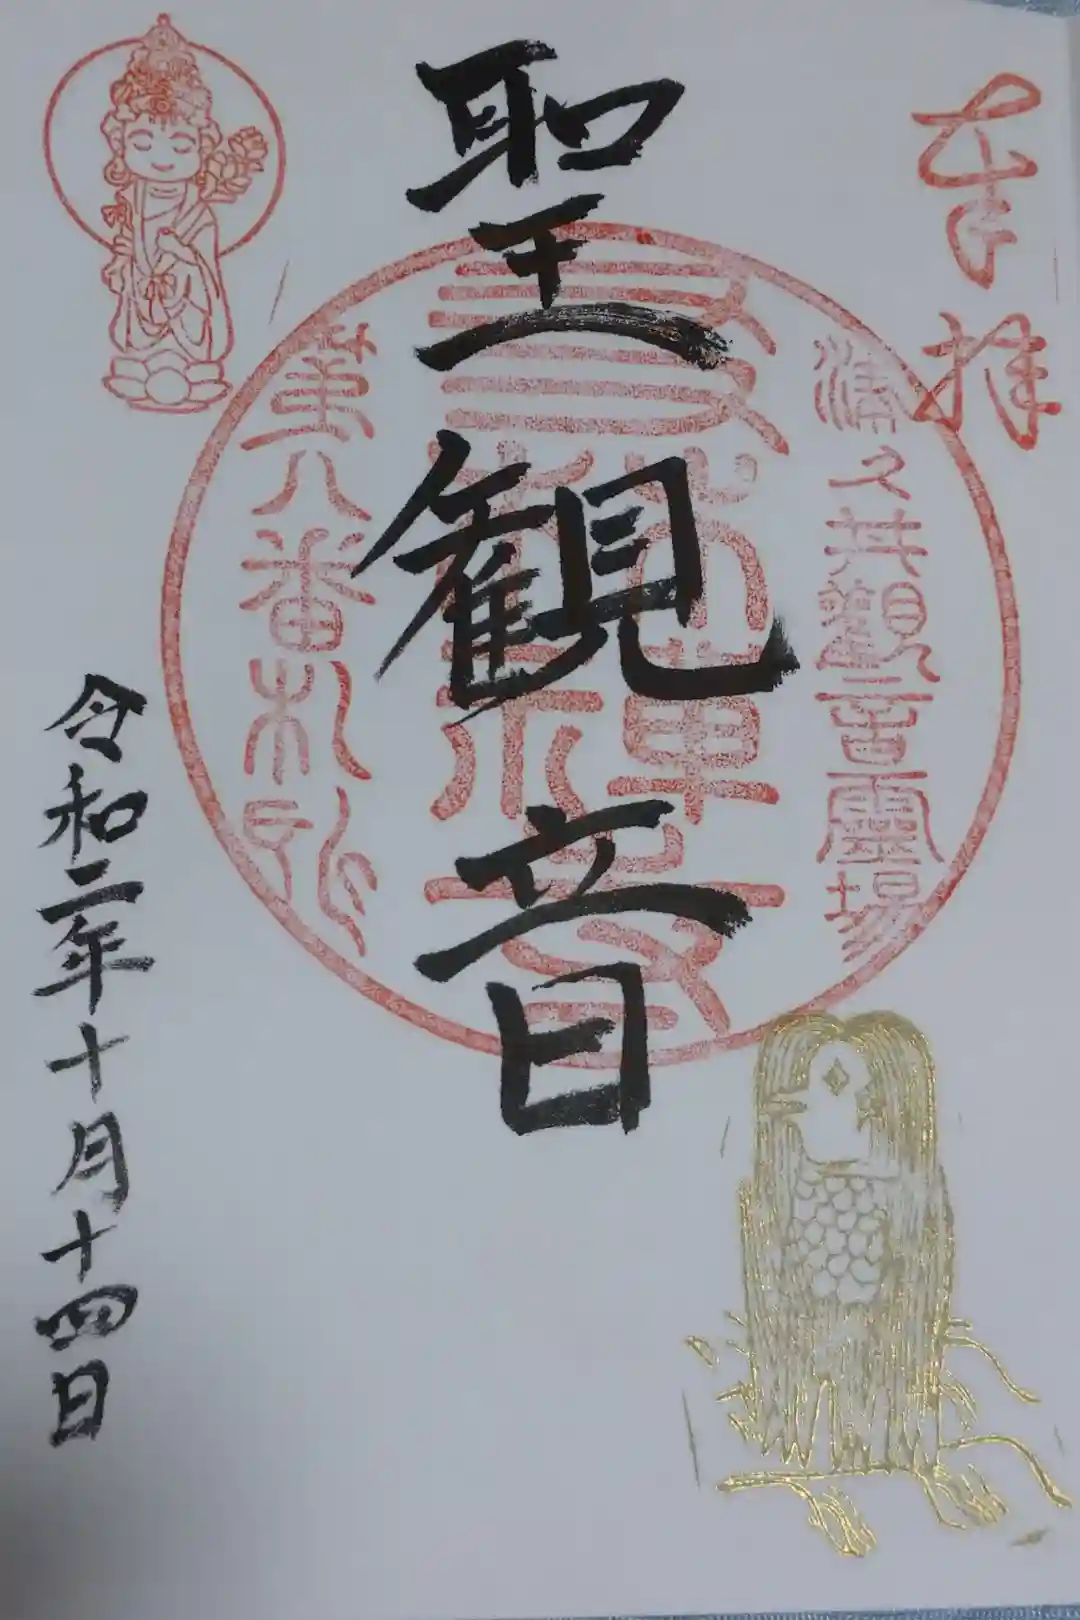 奉拝
津久井觀音靈場
聖観音
第八番札所
令和二年十月十四日